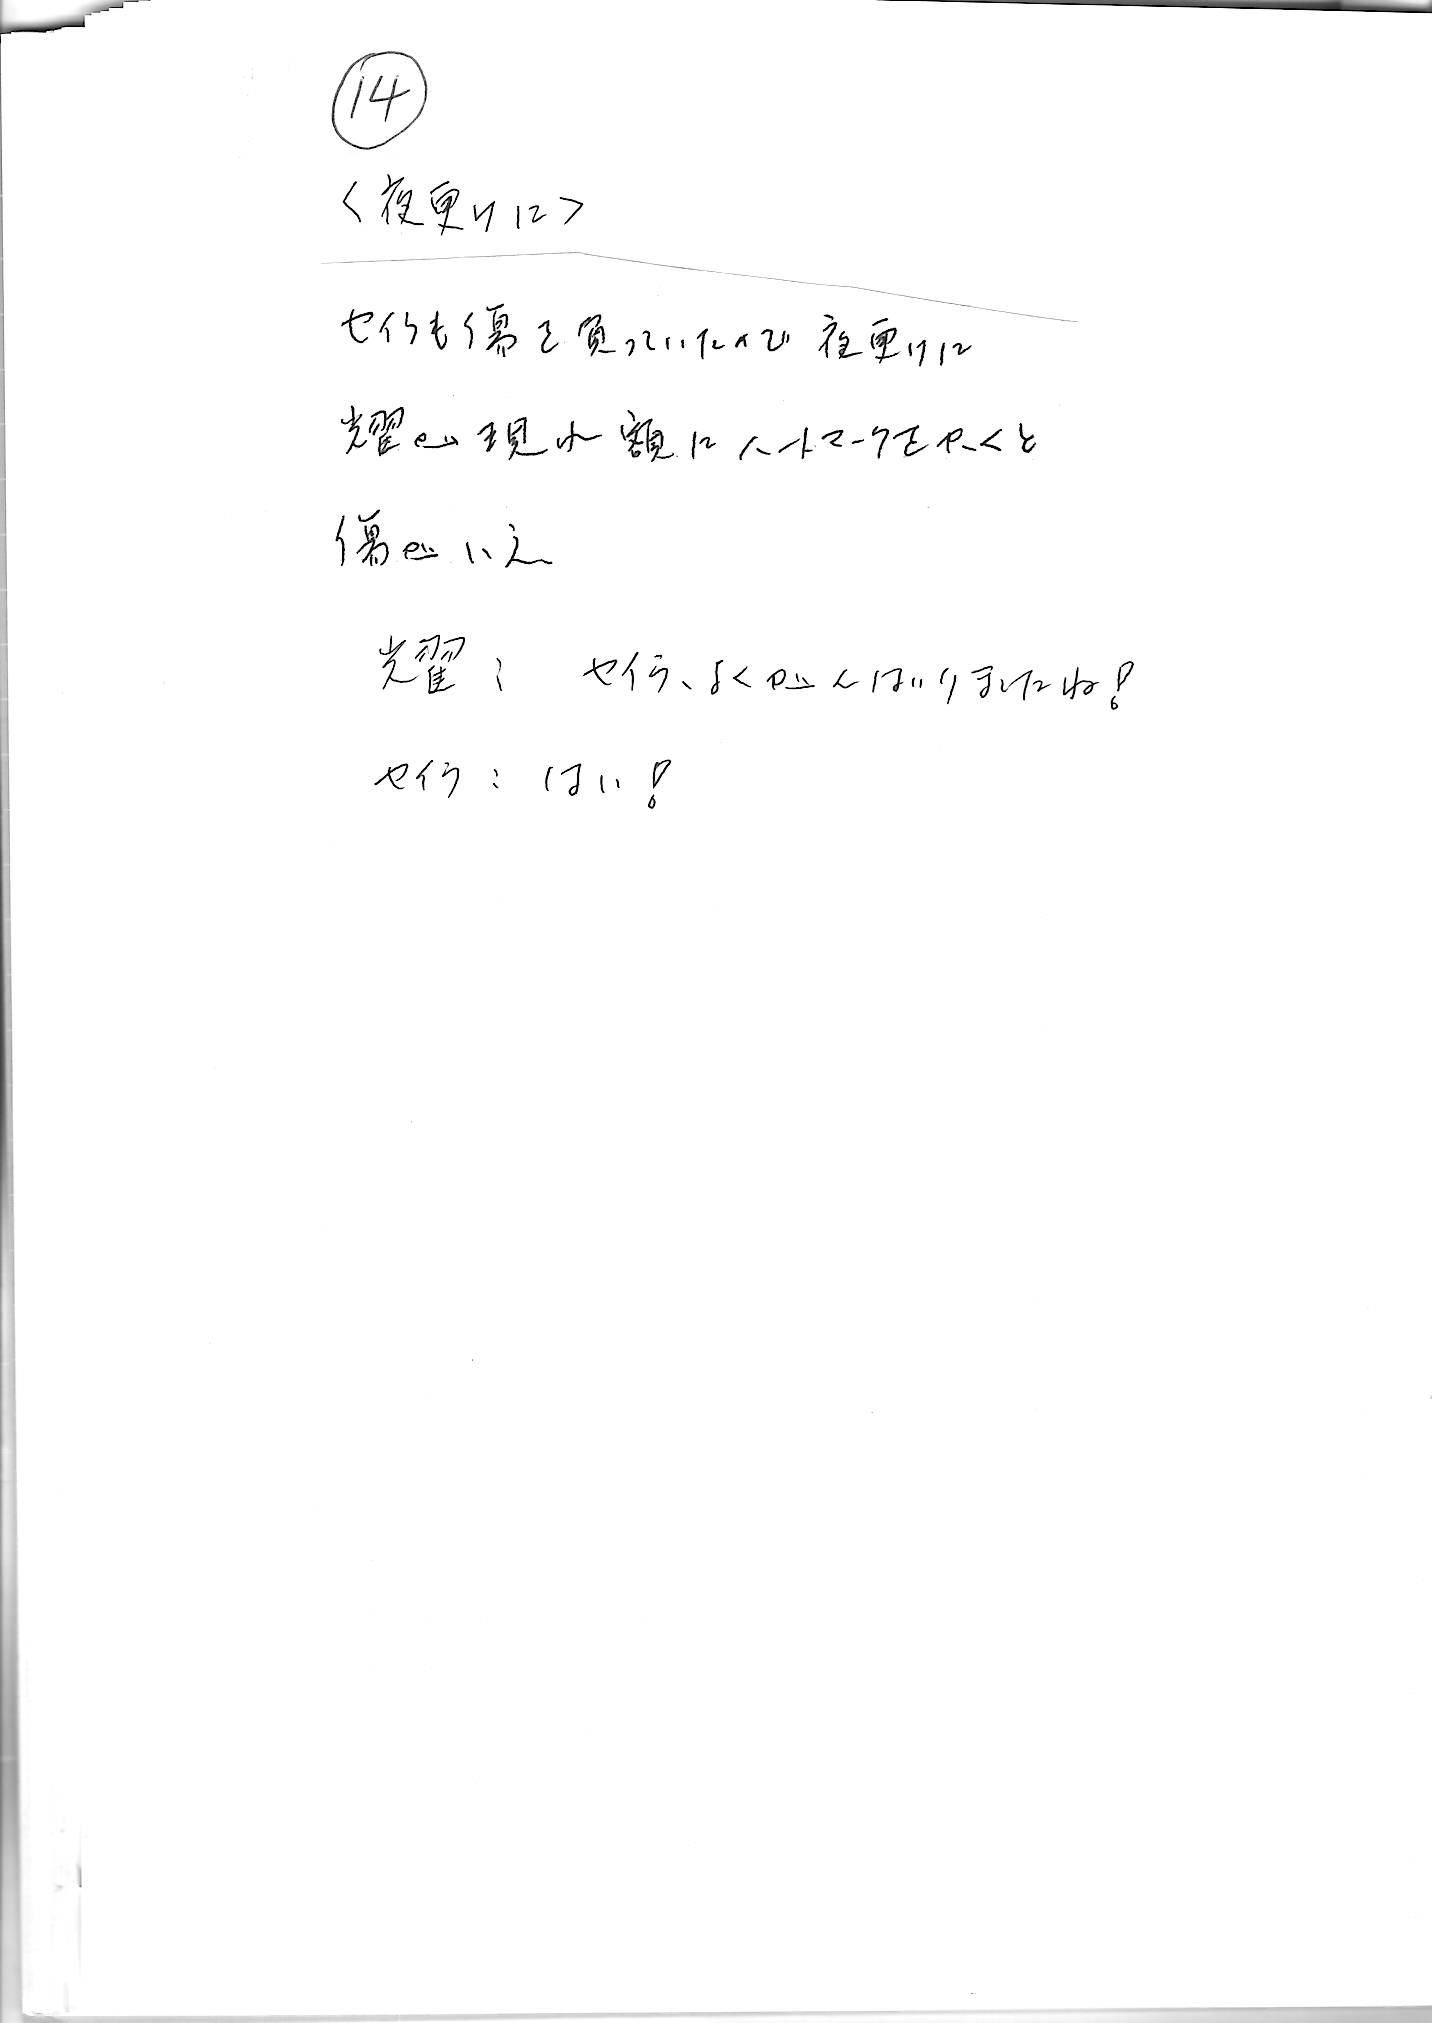 14
＜夜更けに＞
セイラも傷を負っていたので 夜更けに
耀が現れ額にハートマークをかくと
傷がいえ
耀： セイラ、よくがんばりましたね！
セイラ：はい！